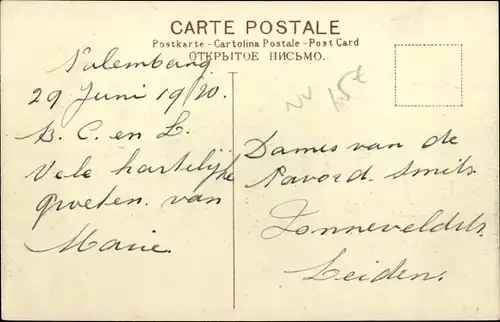 CARTE POSTALE
Postkarte - Cartolina Postale - Post Card
ОТКРЫТОЕ ПИСЬМО.
Palembang
29 Juni 1920.
B. C. en L.
Vele hartelijke
groeten van
Marie.
15€
Dames van de
Pavord Smits.
Zonneveldstr.
Leiden.